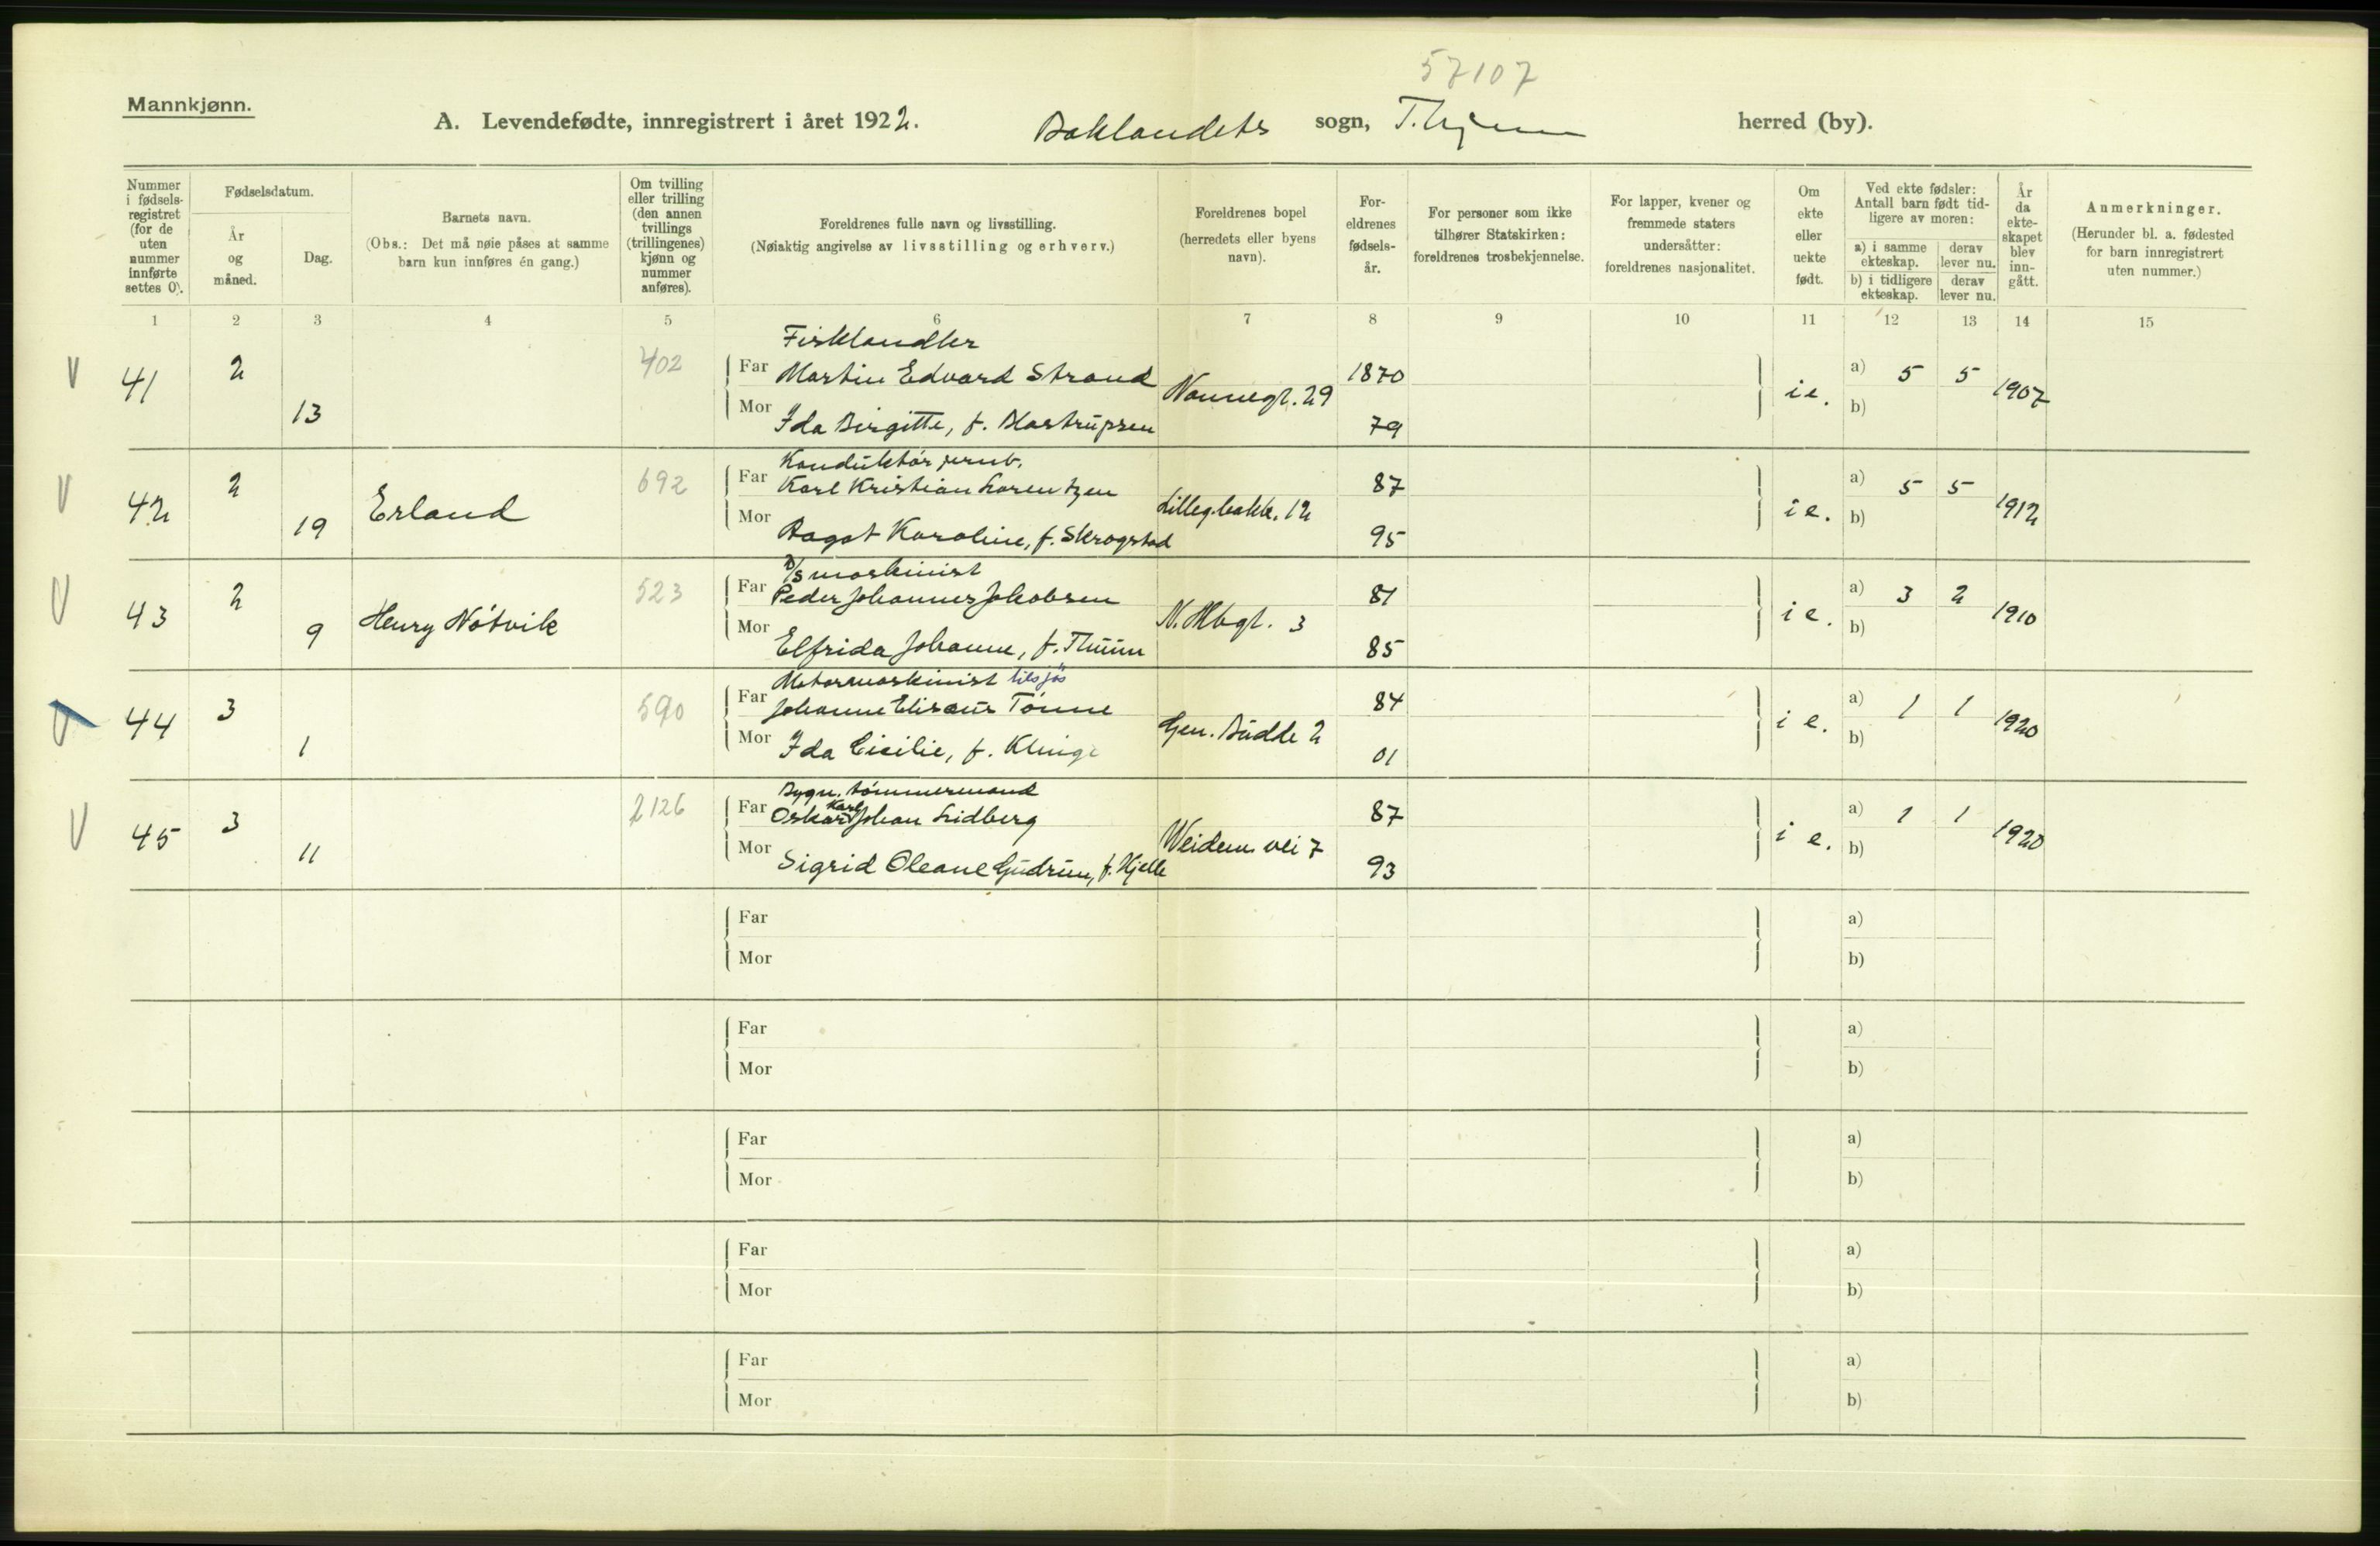 57107
Mannkjønn.
A. Levendefødte, innregistrert i året 1922. Baklandets sogn, T.hjem herred (by).
Nummer i fødsels-registret (for de uten nummer innførte settes 0).
Fødselsdatum.
År og måned.
Dag.
Barnets navn.
(Obs.: Det må nøie påses at samme barn kun innføres én gang.)
Om tvilling eller trilling (den annen tvillings (trillingenes) kjønn og nummer anføres).
Foreldrenes fulle navn og livsstilling.
(Nøiaktig angivelse av livsstilling og erhverv.)
Foreldrenes bopel (herredets eller byens navn).
For-eldrenes fødsels-år.
For personer som ikke tilhører Statskirken: foreldrenes trosbekjennelse.
For lapper, kvener og fremmede staters undersåtter: foreldrenes nasjonalitet.
Om ekte eller uekte født.
Ved ekte fødsler: Antall barn født tid-ligere av moren:
a) i samme ekteskap.
derav lever nu.
b) i tidligere ekteskap.
derav lever nu.
År da ekte-skapet blev inn-gått.
Anmerkninger.
(Herunder bl. a. fødested for barn innregistrert uten nummer.)
1 2 3 4 5 6 7 8 9 10 11 12 13 14 15
Fiskhandler
V 41 2 13 402 Far Martin Edvard Strand Nonnegt. 29 1870 i e. a) 5 5 1907
Mor Ida Birgitte, f. Kastrupsen 79 b)
Konduktør jernb.
V 42 2 19 Erland 692 Far Karl Kristian Lorentzen Lillegbakk. 12 87 i e. a) 5 5 1912
Mor Ragot Karoline, f. Skrogstad 95 b)
D/s maskinist
V 43 2 9 Henry Nótvik 523 Far Peder Johannes Jakobsen 81 i e. a) 3 2 1910
N. Mbgt. 3
Mor Elfrida Johanne, f. Thunn 85 b)
Motormaskinist tilsjøs
V 44 3 1 590 Far Johanne Elisæus Tønne Gen. Budde 2 84 i e. a) 1 1 1920
Mor Ida Cicilie, f. Klinge 01 b)
Bygn. tømmermand
V 45 3 11 2126 Far Oskar Karl Johan Lidberg Weidem. vei 7 87 i e. a) 1 1 1920
Mor Sigrid Oleane Gudrun, f. Hjelle 93 b)
Far a)
Mor b)
Far a)
Mor b)
Far a)
Mor b)
Far a)
Mor b)
Far a)
Mor b)